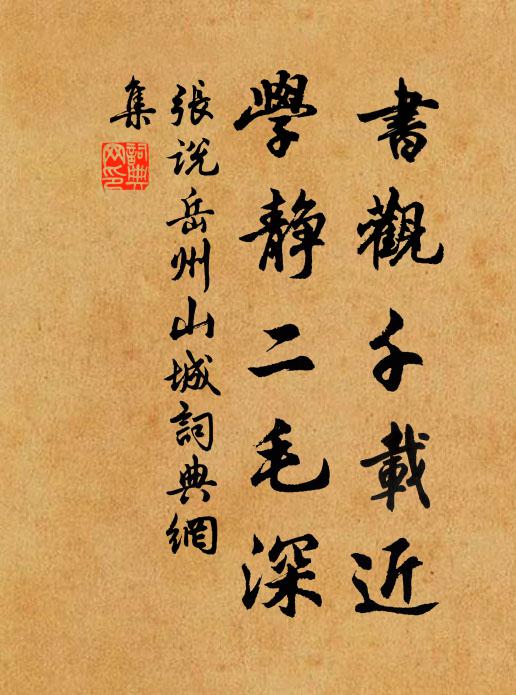 書觀千載近
學靜二毛深
張說岳州山城詞典網
集
詞典網印